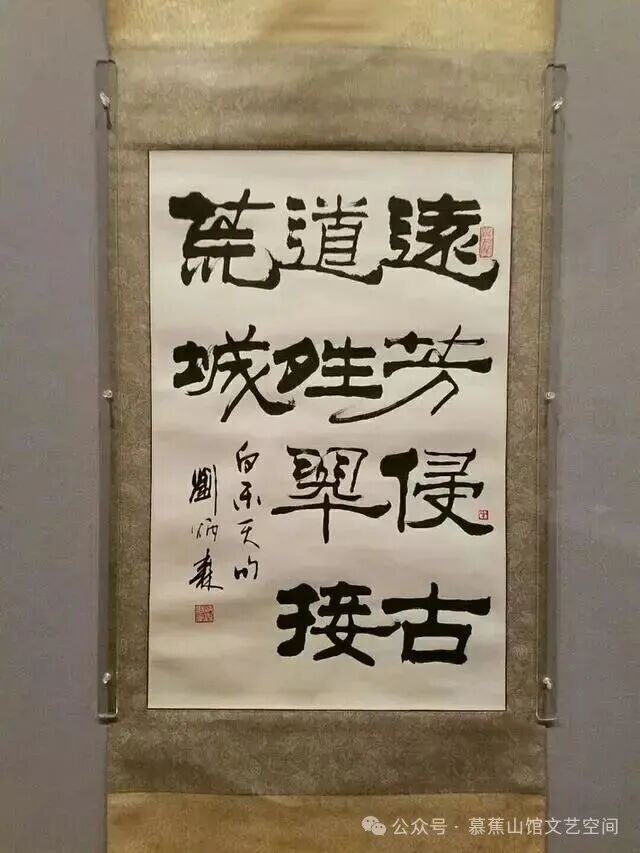 遠芳侵古
道夝翠接
荒城
白乐天句
劉炳森
公众号 · 慕蕉山馆文艺空间